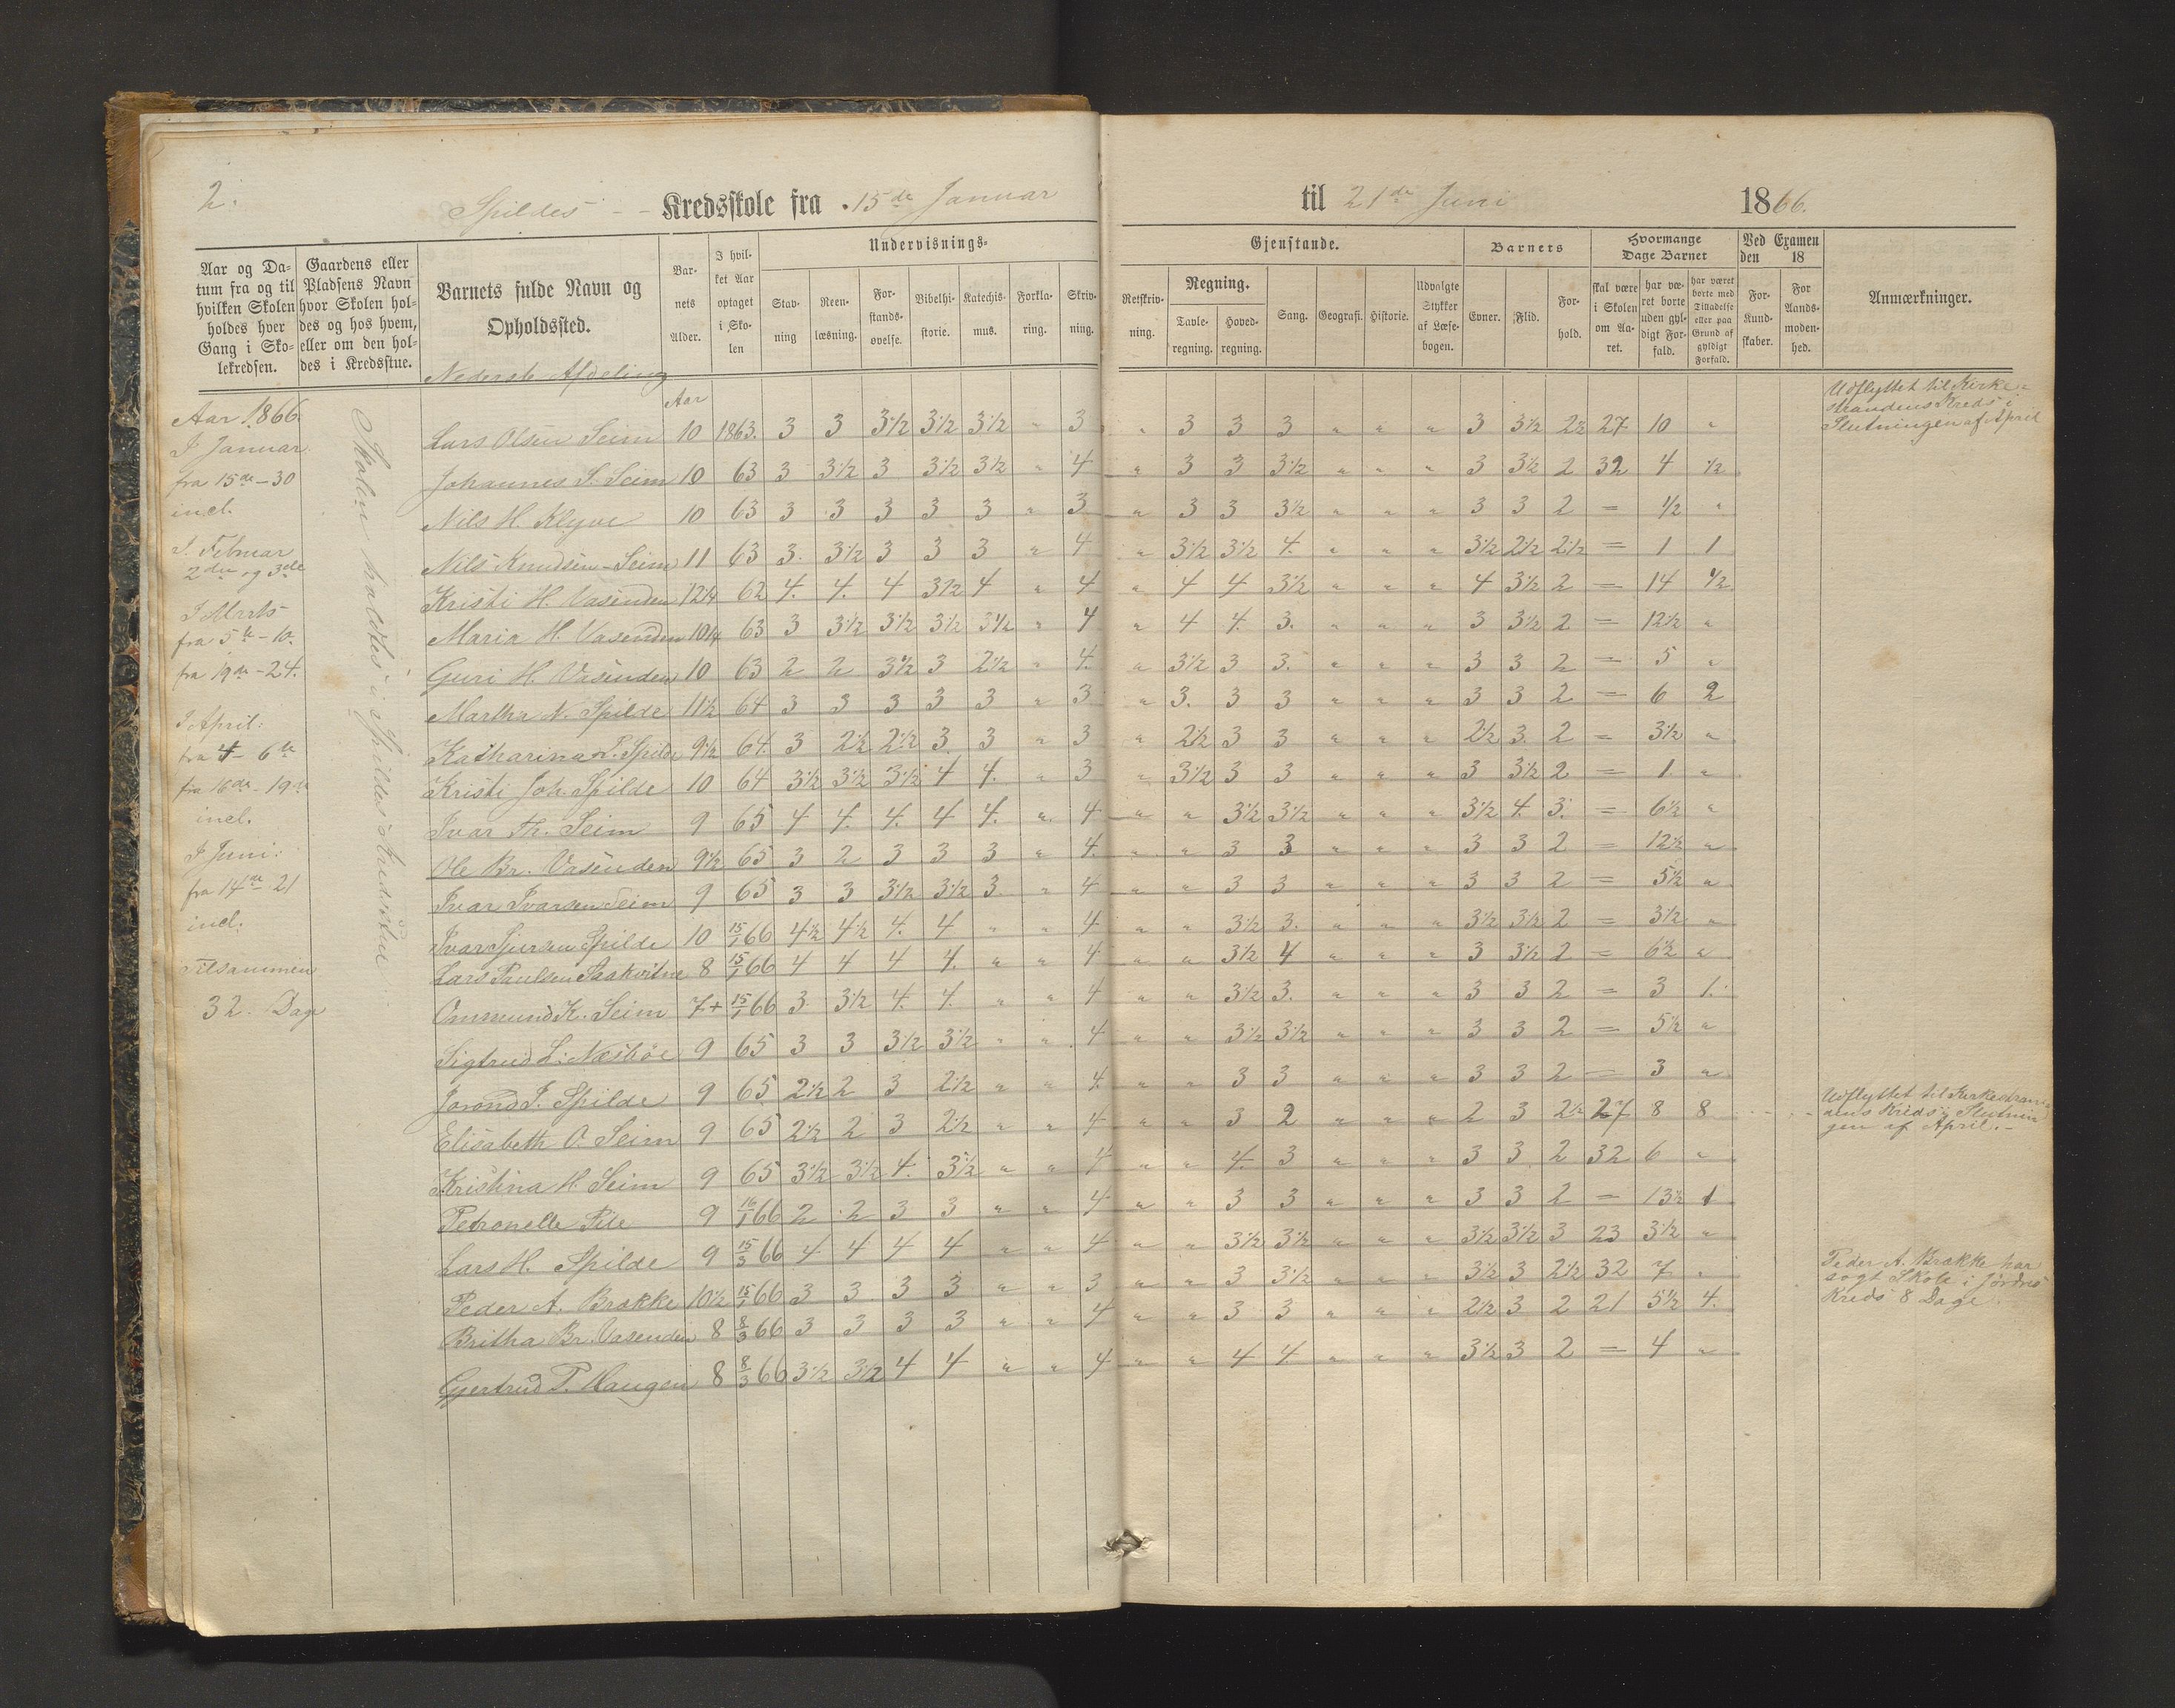 2.
Spildes Kredsskole fra 15de Januar til 21de Juni 1866.
Aar og Datum fra og til hvilken Skolen holdes hver Gang i Skolekredsen.
Gaardens eller Pladsens Navn hvor Skolen holdes og hos hvem, eller om den holdes i Kredsstue.
Barnets fulde Navn og Opholdssted.
Barnets Alder.
I hvilket Aar optaget i Skolen
Undervisnings- Gjenstande.
Stavning
Reenlæsning.
Forstandsøvelse.
Bibelhistorie.
Katechismus.
Forklaring.
Skrivning.
Retskrivning.
Regning.
Tavleregning.
Hovedregning.
Sang.
Geografi.
Historie.
Udvalgte Stykker af Læsebogen.
Barnets
Evner.
Flid.
Forhold.
Hvormange Dage Barnet
skal være i Skolen om Aaret.
har været borte uden gyldigt Forfald.
har været borte med Tilladelse eller paa Grund af gyldigt Forfald.
Ved Examen den 18
For Kundskaber.
For Aandsmodenhed.
Anmærkninger.
Nederste Afdeling
Aar
Aar 1866.
I Januar
fra 15de - 30
incl.
I Februar
2den og 3de
I Marts
fra 5te - 10.
fra 19de - 24.
I April:
fra 4 - 6te
fra 16de - 19de
incl.
I Juni:
fra 14de 21
incl.
Tilsammen
32. Dage
Skolen holdtes i Spildes Kredsstue
Lars Olsen Seim 10 1863. 3 3 3 1/2 3 1/2 3 1/2 " 3 " 3 3 3 " " " 3 3 1/2 2 1/2 27 10 " Udflyttet til Kirkestrandens Kreds i Slutningen af April
Johannes S. Seim 10 63 3 3 1/2 3 3 1/2 3 1/2 " 4 " 3 3 3 1/2 " " " 3 3 1/2 2 32 4 1/2
Nils H. Klyve 10 63 3 3 3 3 3 " 3 " 3 3 3 1/2 " " " 3 3 2 = 1/2 "
Nils Knudsen Seim 11 63 3. 3 1/2 3 3 3 " 4 " 3 1/2 3 1/2 4. " " " 3 1/2 2 1/2 2 1/2 = 1 1
Kristi H. Vasenden 12 1/4 62 4. 4. 4 3 1/2 4 " 4 " 4 4 3 1/2 " " " 4 3 1/2 2 = 14 1/2
Maria H. Vasenden 10 1/4 63 3 3 1/2 3 1/2 3 1/2 3 1/2 " 4 " 4 4. 3. " " " 3 3 1/2 2 = 12 1/2 "
Guri H. Vasenden 10 63 2 2 3 1/2 3 2 1/2 " 4. " 3 1/2 3 3. " " " 3 3 2 = 5 "
Martha N. Spilde 11 1/2 64 3 3 3 3 3 " 3 " 3. 3 3 " " " 3 3 2 = 6 2
Katharina P. Spilde 9 1/2 64. 3 2 1/2 2 1/2 3 3 " 3 " 2 1/2 3 3 " " " 2 1/2 3. 2 = 3 1/2 "
Kristi Joh. Spilde 10 64 3 1/2 3 1/2 3 1/2 4 4. " 3 " 3 1/2 3 3 " " " 3 3 1/2 2 = 1. "
Ivar Th. Seim 9 65 4 4. 4. 4 4. " 4 " " 3 1/2 3 1/2 " " " 3 1/2 4. 3. = 6 1/2 "
Ole Br. Vasenden 9 1/2 65 3 2 3 3 3 " 4. " " 3 3 " " " 3 3 2 = 12 1/2 "
Ivar Ivarsen Seim 9 65 3 3 3 1/2 3 1/2 3 " 4 " " 3 3 " " " 3 3 2 = 5 1/2 "
Ivar Sjursen Spilde 10 15/1 66 4 1/2 4 1/2 4. 4 " " 4 " " 3 1/2 3. " " " 3 1/2 3 1/2 2 = 3 1/2 "
Lars Paulsen Saakvitne 8 15/1 66 4 4 4 4. " " 4 " " 3 1/2 4 " " " 3 3 1/2 2 = 6 1/2 "
Ommund K. Seim 7+ 15/1 66 3 3 1/2 4. 4 " " 4 " " 3 1/2 3. " " " 3 3 2 = 3 1.
Sigtrud L. Næsbøe 9 65 3 3 3 1/2 3 1/2 " " 4 " " 3 1/2 3 1/2 " " " 3 3 2 = 5 1/2 "
Jorond I. Spilde 9 65 2 1/2 2 3 2 1/2 " " 4. " " 3 3 " " " 3 3 2 = 3 "
Elisabeth O. Seim 9 65 2 1/2 2 3 2 1/2 " " 4 " " 3 2 " " " 2 3 2 1/2 27 8 8 Udflyttet til Kirkestrandens Kreds i Slutningen af April.
Kristina H. Seim 9 65 3 1/2 3 1/2 4. 3 1/2 " " 4 " " 4. 3 " " " 3 3 2 32 6 "
Petronelle Pile 9 16/1 66 2 2 3 3 " " 4 " " 3 3 " " " 3 3 2 = 13 1/2 1
Lars H. Spilde 9 15/3 66 4 4 4 4 " " 4 " " 3 1/2 3 1/2 " " " 3 1/2 3 1/2 3 23 3 1/2 "
Peder A. Brakke 10 1/2 15/1 66 3 3 3 3 " " 3 " " 3 3 1/2 " " " 3 1/2 3 2 1/2 32 7 " Peder A. Brakke har søgt Skole i Jordnes Kreds 8 Dage
Britha Br. Vasenden 8 8/3 66 3 3 3 3 " " 4 " " 3 3 " " " 2 1/2 3 2 21 5 1/2 4.
Gjertrud P. Haugen 8 8/3 66 3 1/2 3 1/2 4 4 " " 4 " " 4 4 " " " 3 1/2 3 2 = 4 "